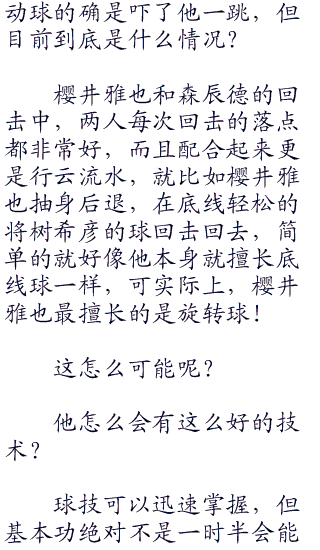 动球的确是吓了他一跳，但
目前到底是什么情况？
樱井雅也和森辰德的回
击中，两人每次回击的落点
都非常好，而且配合起来更
是行云流水，就比如樱井雅
也抽身后退，在底线轻松的
将树希彦的球回击回去，简
单的就好像他本身就擅长底
线球一样，可实际上，樱井
雅也最擅长的是旋转球！
这怎么可能呢？
他怎么会有这么好的技
术？
球技可以迅速掌握，但
基本功绝对不是一时半会能